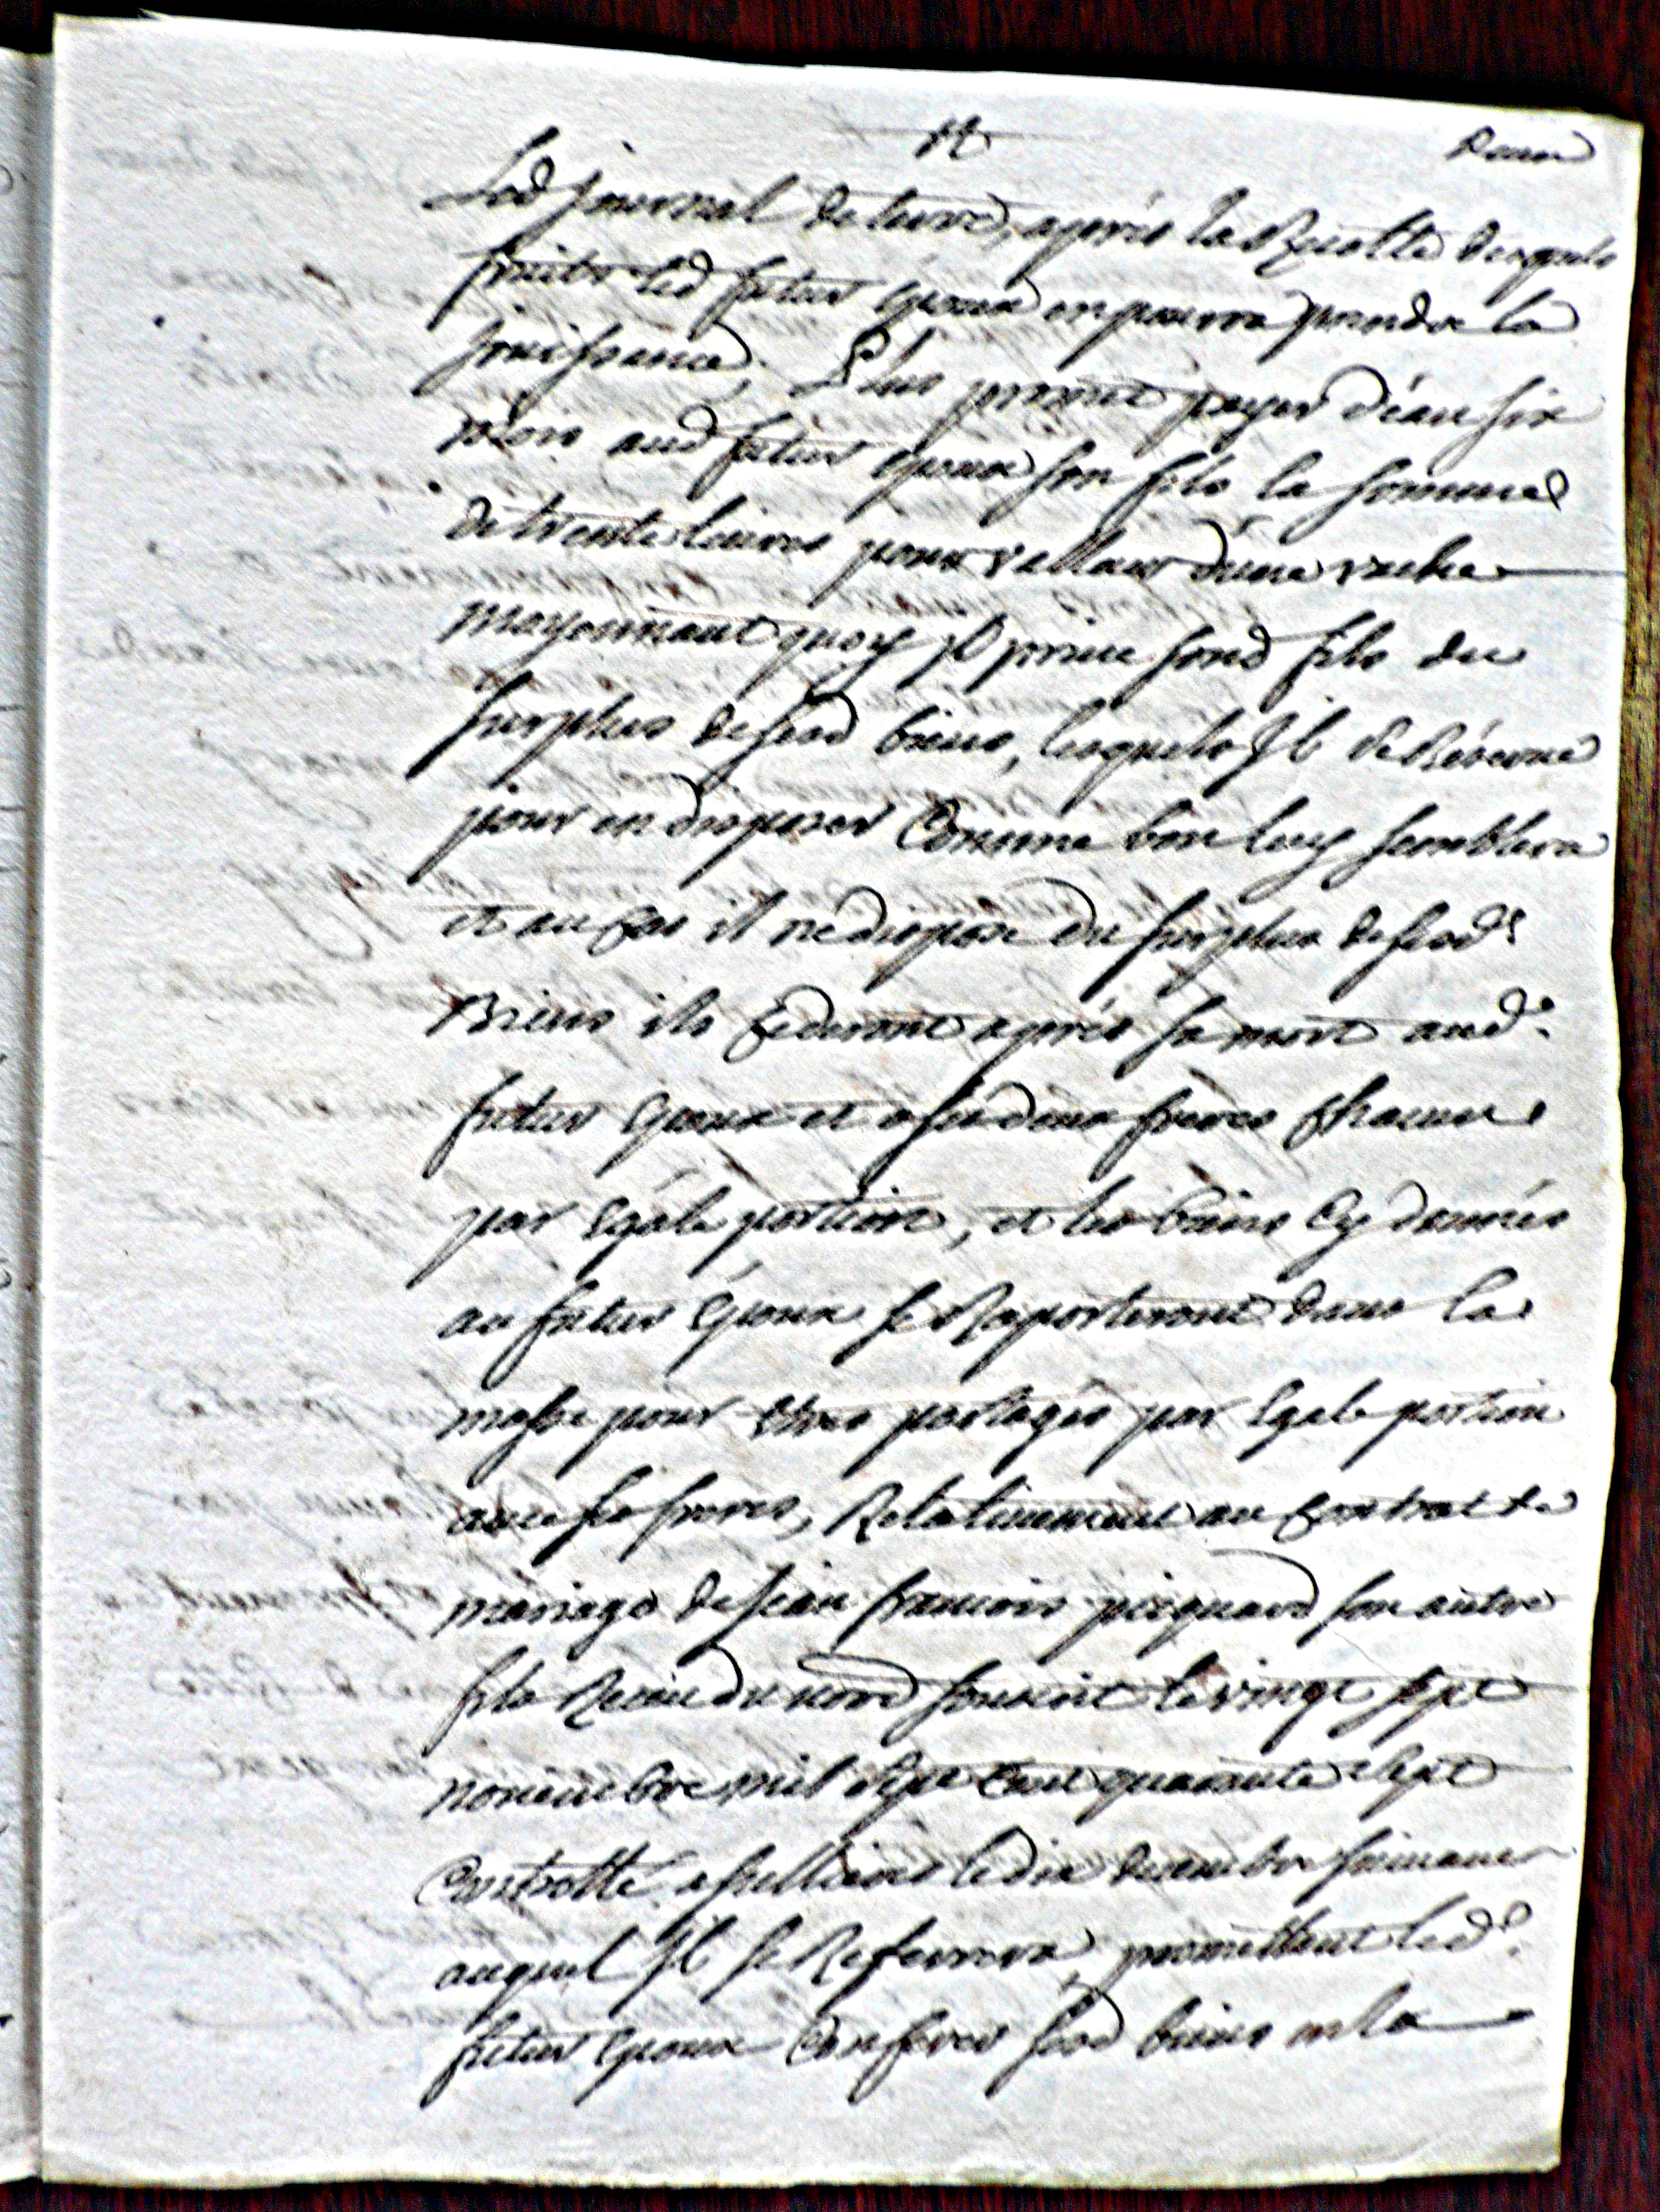 Led journal de terre, après la Recolte desquels
fruits led futur Epoux en pourra prendre la
jouissance, Plus promet payer d'icy six
mois aud futur Epoux son fils la somme
de trente livres pour valleur d'une vache
moyennant quoy jl prive sond fils du
surplus de sesd biens, lesquels Jl se Réserve
pour en disposer Comme bon luy semblera
et au cas il ne dispose du surplus de sesd.
Biens ils cederont après sa mort aud.
futur Epoux et a ses deux freres chacun
par Egale portion, et les biens Cy donnés
au futur Epoux se Raporteront dans la
masse pour Etres partagés par Egale portion
avec ses freres, Relativement au contrat de
mariage de Jean francois picquard son autre
fils Receu du nore soussigné le vingt sept
novembre mil sept Cent quarante sept
Controllé a le dix decembre suivant
auquel Jl se Referrera, promettent led.
futur Epoux Conferer sesd biens en la